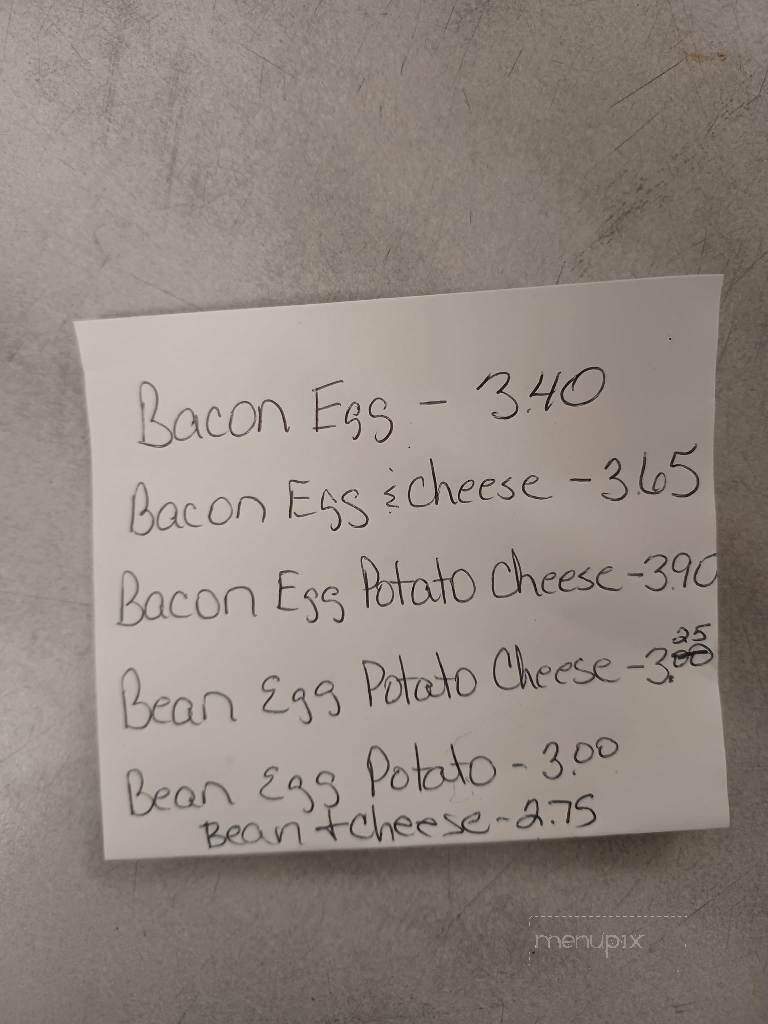 Bacon Egg - 3.40
Bacon Egg & cheese - 3.65
Bacon Egg Potato Cheese - 3.90
Bean Egg Potato Cheese - 3.25
Bean Egg Potato - 3.00
Bean + cheese - 2.75
menupix